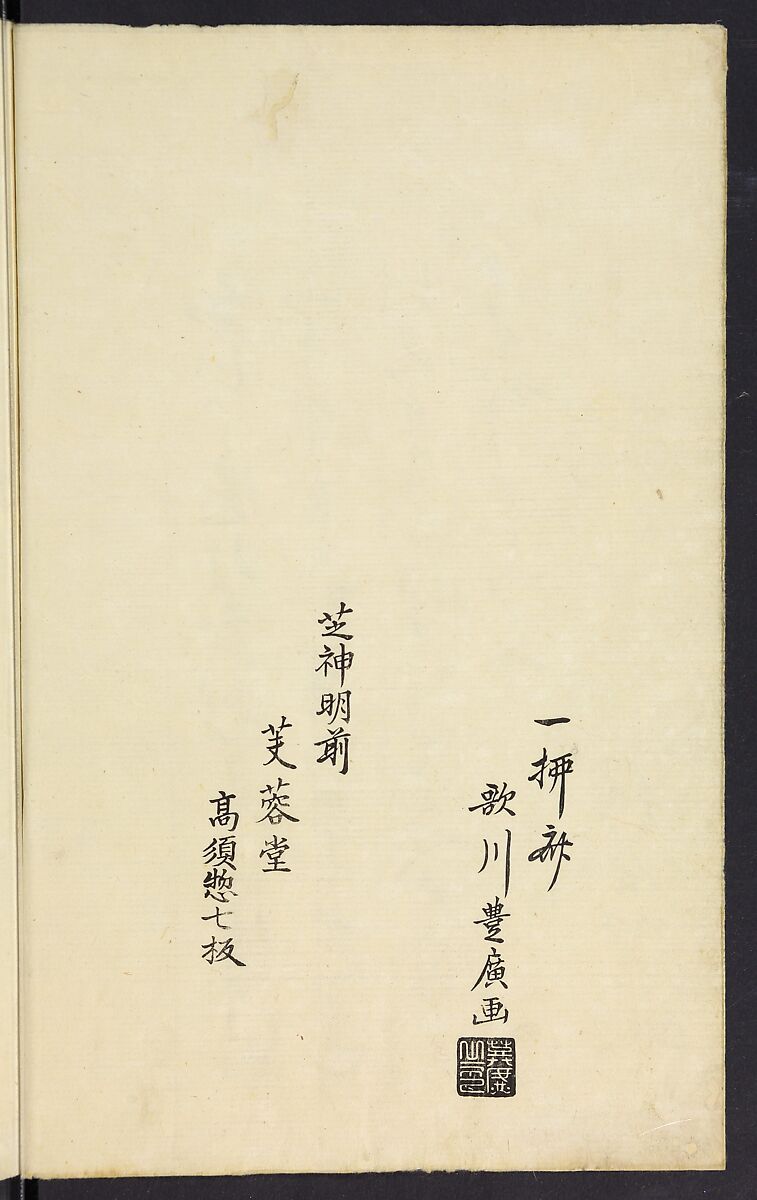 一柳斎
歌川豊廣画
芝神明前
芙蓉堂
高須惣七板